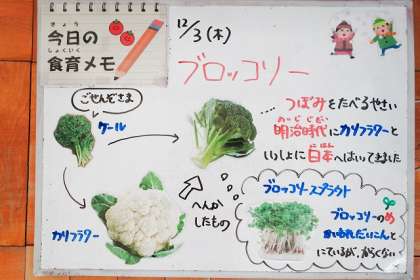 きょう
今日の
しょくいく
食育メモ
12/3(木)
ブロッコリー
ごせんぞさま
ケール
カリフラワー
へんか
したもの
…つぼみをたべるやさい
めいじじだい
明治時代にカリフラワーと
いっしょに日本へはいってきました
にほん
ブロッコリースプラウト
ブロッコリーのめ
かいわれだいこんと
にているが、からくない